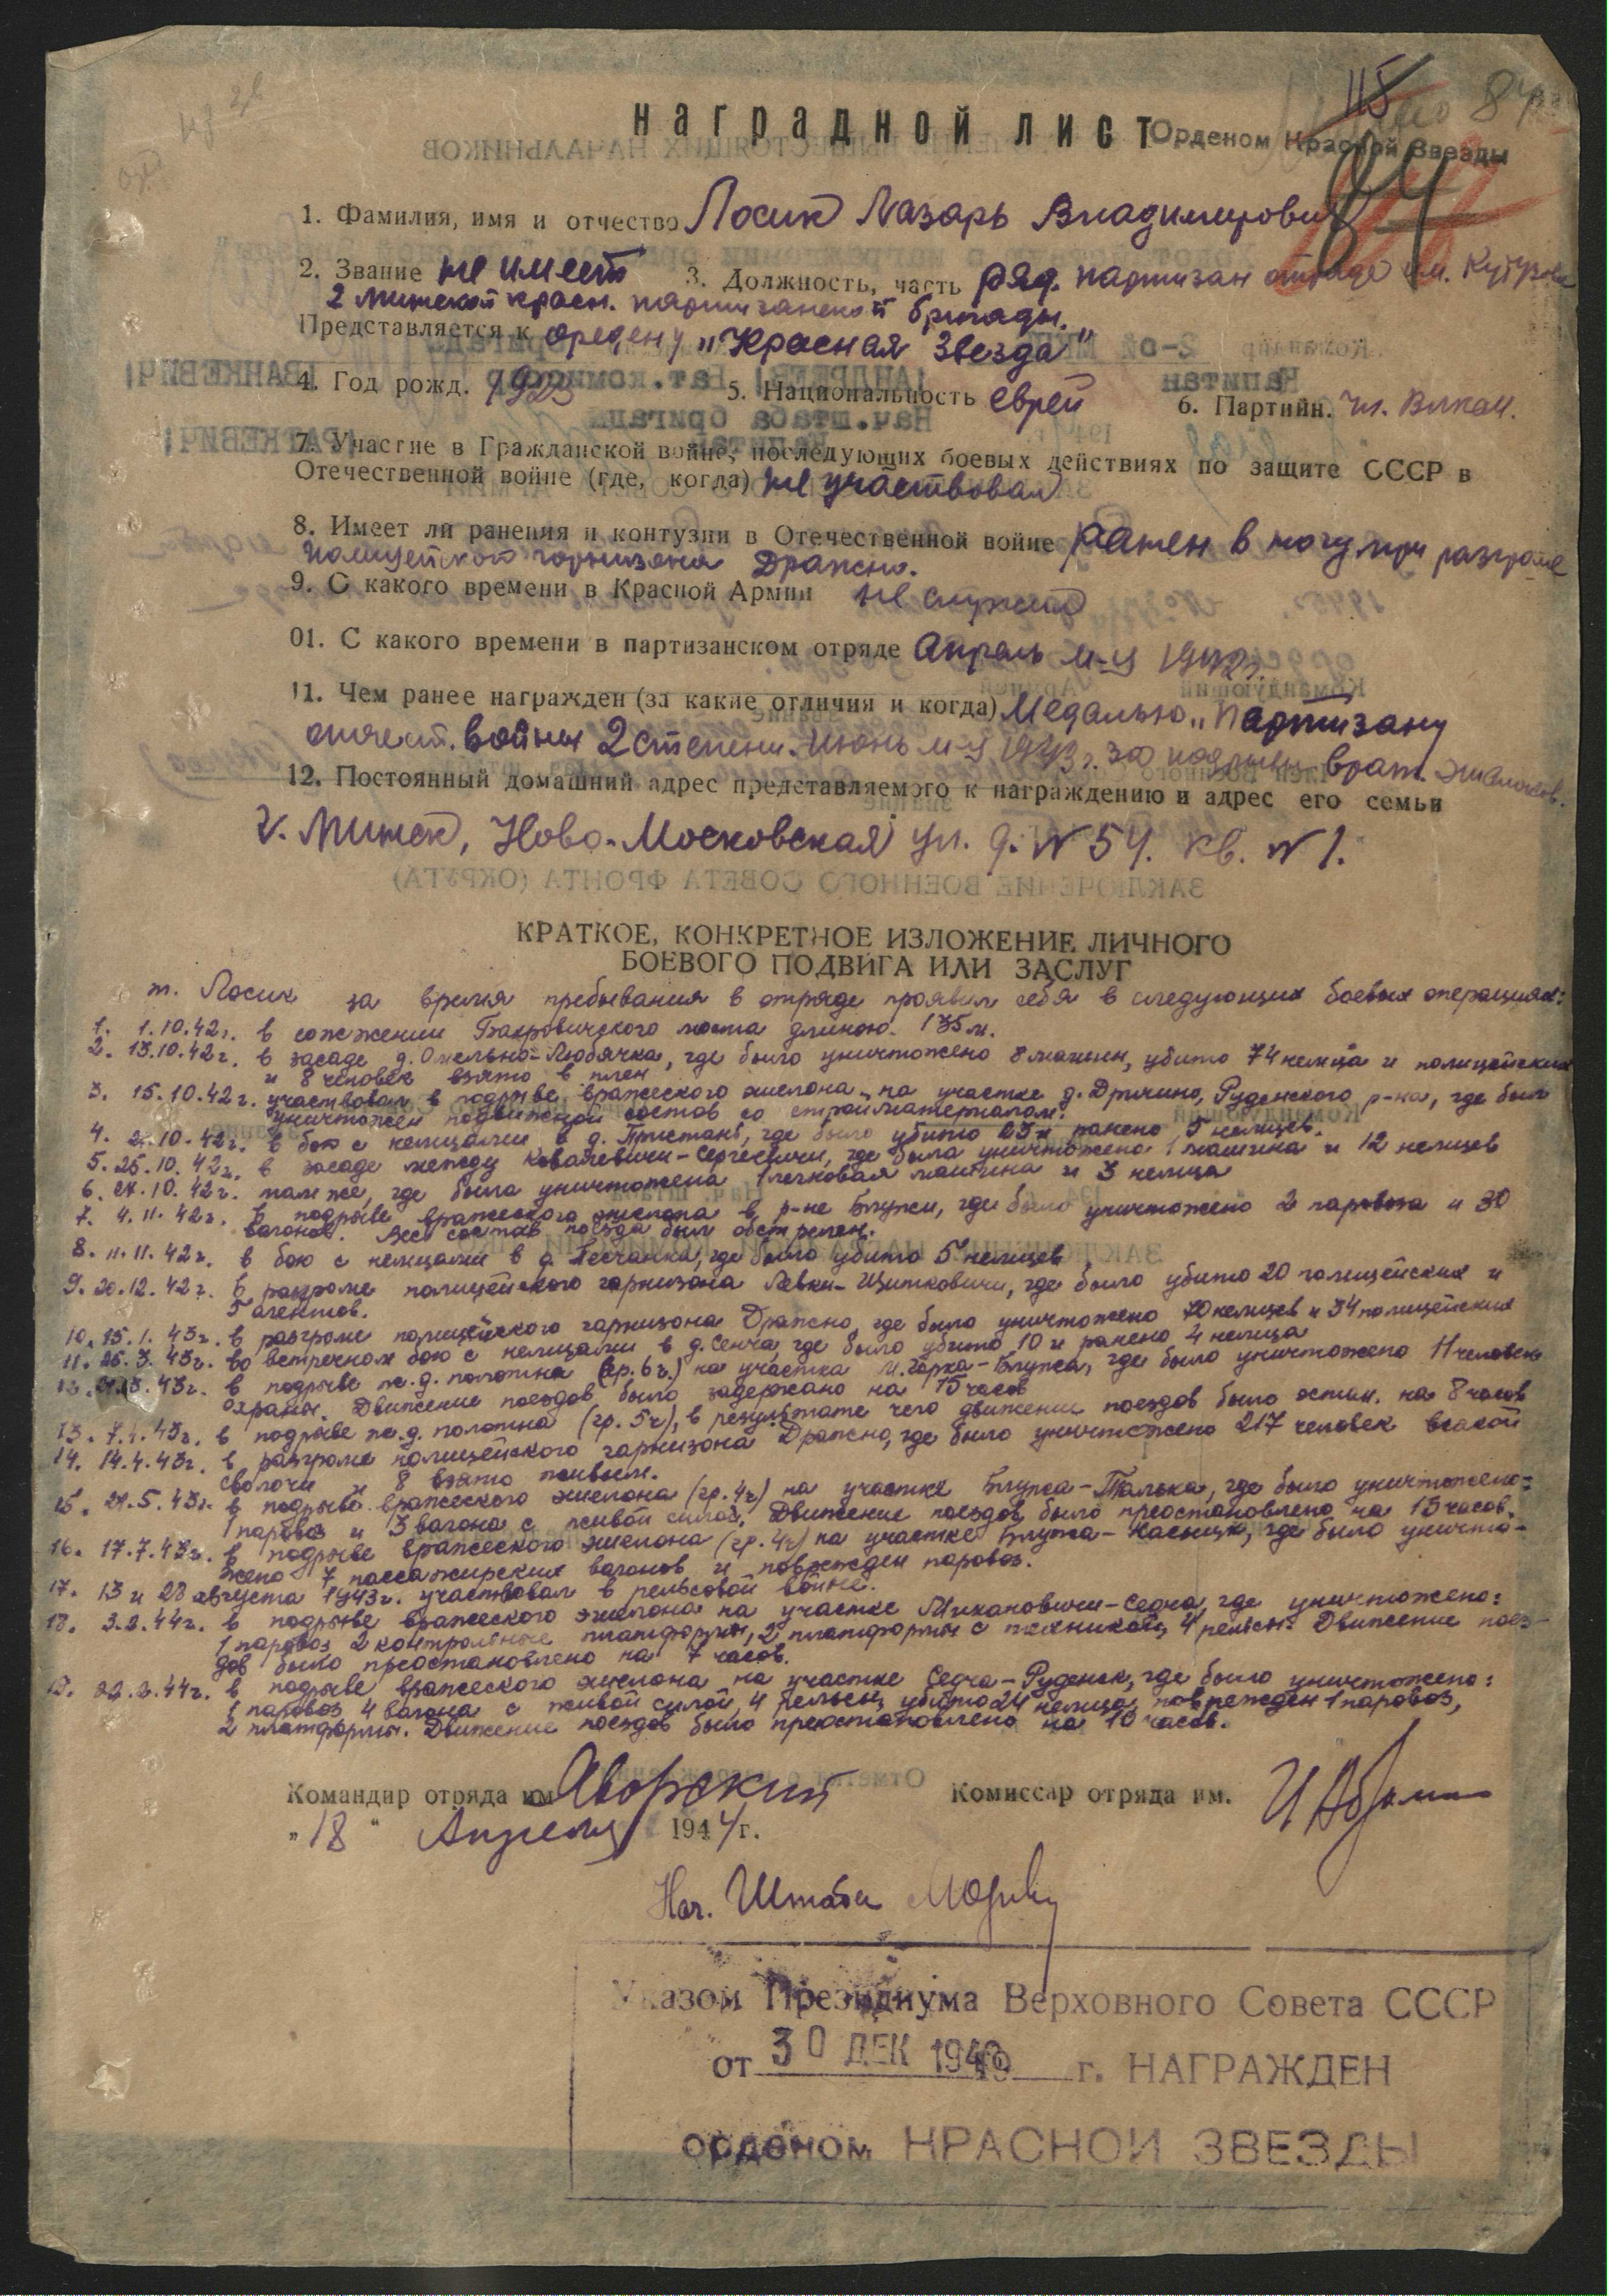 115
84
наградной лист Орденом Красной Звезды
84
1. Фамилия, имя и отчество Лосик Лазарь Владимирович
2. Звание не имеет 3. Должность, часть ряд. партизан отряда им. Кутузова
2 Минской красн. партизанской бригады.
Представляется к ордену „Красная Звезда"
4. Год рожд. 1923 5. Национальность еврей 6. Партийн. чл. ВЛКСМ.
7. Участие в Гражданской войне, последующих боевых действиях по защите СССР в
Отечественной войне (где, когда) не участвовал
8. Имеет ли ранения и контузии в Отечественной войне ранен в ногу при разгроме
полицейского гарнизона Дражно.
9. С какого времени в Красной Армии не служил
01. С какого времени в партизанском отряде Апрель м-ц 1942г.
11. Чем ранее награжден (за какие отличия и когда) Медалью „Партизану
отечест. войны 2 степени. Июнь м-ц 1943 г. за подрывы враж. эшелонов.
12. Постоянный домашний адрес представляемого к награждению и адрес его семьи
г. Минск, Ново-Московская ул. д. № 54. кв. № 1.
КРАТКОЕ, КОНКРЕТНОЕ ИЗЛОЖЕНИЕ ЛИЧНОГО
БОЕВОГО ПОДВИГА ИЛИ ЗАСЛУГ
т. Лосик за время пребывания в отряде проявил себя в следующих боевых операциях:
1. 1.10.42г. в сожжении моста длиною 135 м.
2. 13.10.42г. в засаде д. Омельно-Любячка, где было уничтожено 8 машин, убито 74 немца и полицейских
и 8 человек взято в плен
3. 15.10.42г. участвовал в подрыве вражеского эшелона на участке д. Дричино, Руденского р-на, где был
уничтожен подвижной состав со стройматериалом.
4. 21.10.42г. в бою с немцами в д. Пристань, где было убито 23 и ранено 5 немцев.
5. 25.10.42г. в засаде между Ковалевичи-Сергеевичи, где была уничтожена 1 машина и 12 немцев
6. 27.10.42г. там же, где была уничтожена 1 легковая машина и 3 немца
7. 4.11.42г. в подрыве вражеского эшелона в р-не Блужи, где было уничтожено 2 паровоза и 30
вагонов. Весь состав поезда был обстрелен.
8. 11.11.42г. в бою с немцами в д. Песчанка, где было убито 5 немцев
9. 20.12.42г. в разгроме полицейского гарнизона Левки-Щитковичи, где было убито 20 полицейских и
5 агентов.
10. 15.1.43г. в разгроме полицейского гарнизона Дражно, где было уничтожено 70 немцев и 34 полицейских
11. 25.3.43г. во встречном бою с немцами в д. Сенча, где было убито 10 и ранено 4 немца
12. .3.43г. в подрыве ж.д. полотна (гр. 6ч.) на участке М. Горка-Блужа, где было уничтожено 11 человек
охраны. Движение поездов было задержано на 15 часов
13. 7.4.43г. в подрыве ж.д. полотна (гр. 5ч), в результате чего движение поездов было остан. на 8 часов
14. 14.4.43г. в разгроме полицейского гарнизона Дражно, где было уничтожено 217 человек всякой
сволочи и 8 взято живьем.
15. 21.5.43г. в подрыве вражеского эшелона (гр. 4ч) на участке Блужа-Талька, где было уничтожено:
1 паровоз и 3 вагона с живой силой. Движение поездов было преостановлено на 13 часов.
16. 17.7.43г. в подрыве вражеского эшелона (гр. 4ч) на участке Блужа- где было уничто-
жено 7 пассажирских вагонов и поврежден паровоз.
17. 13 и 28 августа 1943г. участвовал в рельсовой войне.
18. 3.2.44г. в подрыве вражеского эшелона на участке Михановичи-Седча, где уничтожено:
1 паровоз, 2 контрольные платформы, 2 платформы с техникой, 4 рельсы. Движение поез-
дов было преостановлено на 7 часов.
19. 22.2.44г. в подрыве вражеского эшелона на участке Седча-Руденск, где было уничтожено:
1 паровоз, 4 вагона с живой силой, 4 рельсы, убито 24 немца, поврежден 1 паровоз,
2 платформы. Движение поездов было преостановлено на 10 часов.
Командир отряда им Яворский Комиссар отряда им.
„18" Апреля 1944г.
Нач. Штаба
Указом Президиума Верховного Совета СССР
от 30 ДЕК 1948 г. НАГРАЖДЕН
орденом КРАСНОЙ ЗВЕЗДЫ